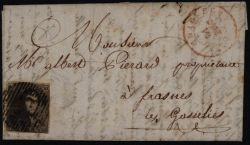 Monsieur
Albert Pierard propriétaire
à frasnes
lez Gosselies